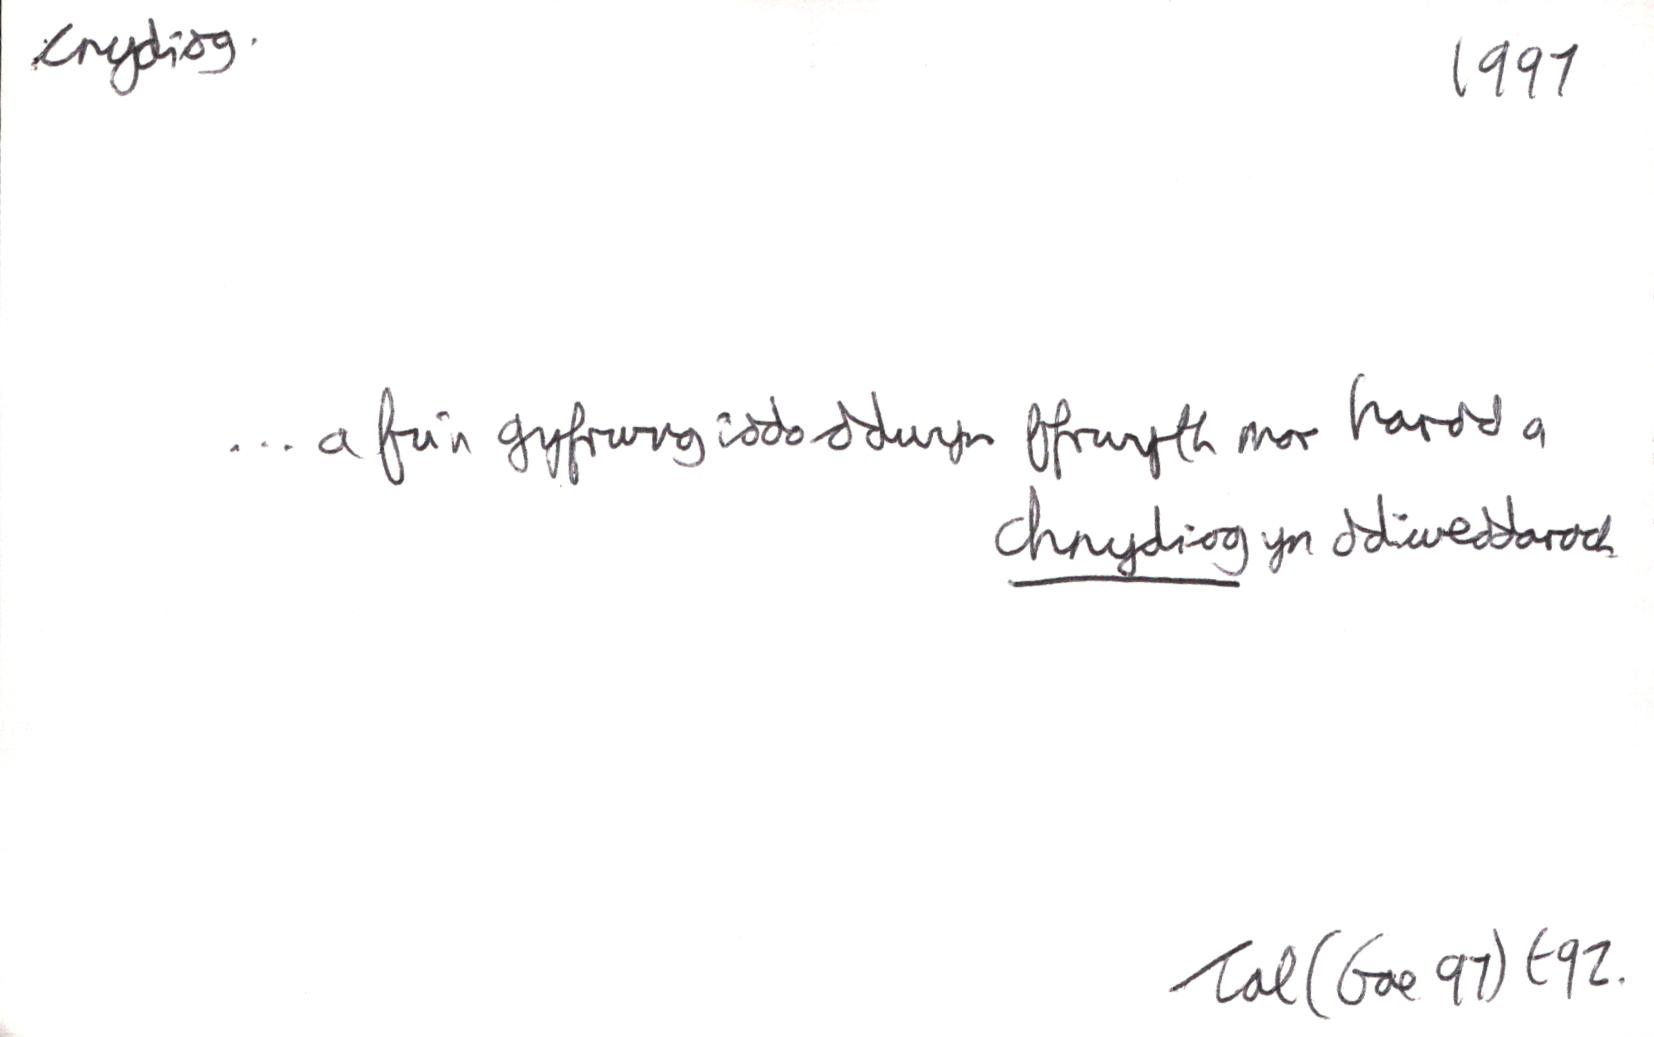 cnydiog. 1997
... a fu'n gyfrwng iddo ddwyn ffrwyth mor hardd a
chnydiog yn ddiweddarach
Tal (Gae 97) t92.